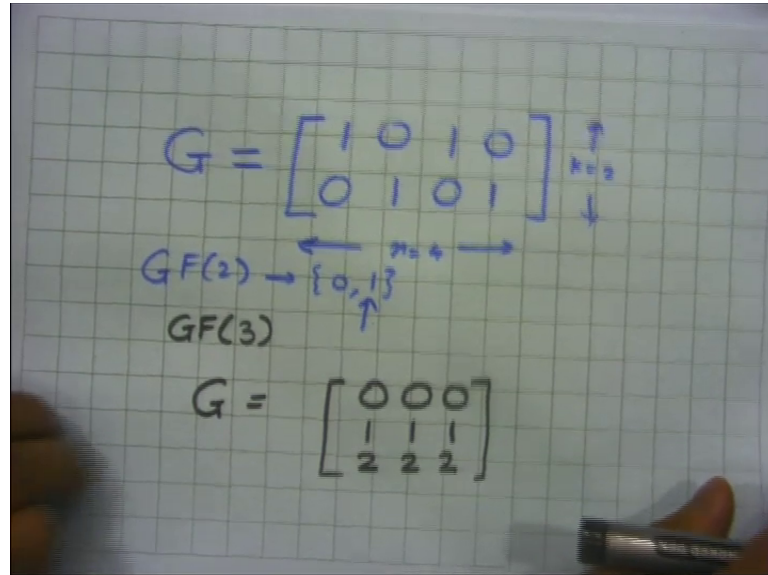 G = [ 1 0 1 0
0 1 0 1 ]
n = 4
GF(2) → {0, 1}
GF(3)
G = [ 0 0 0
1 1 1
2 2 2 ]